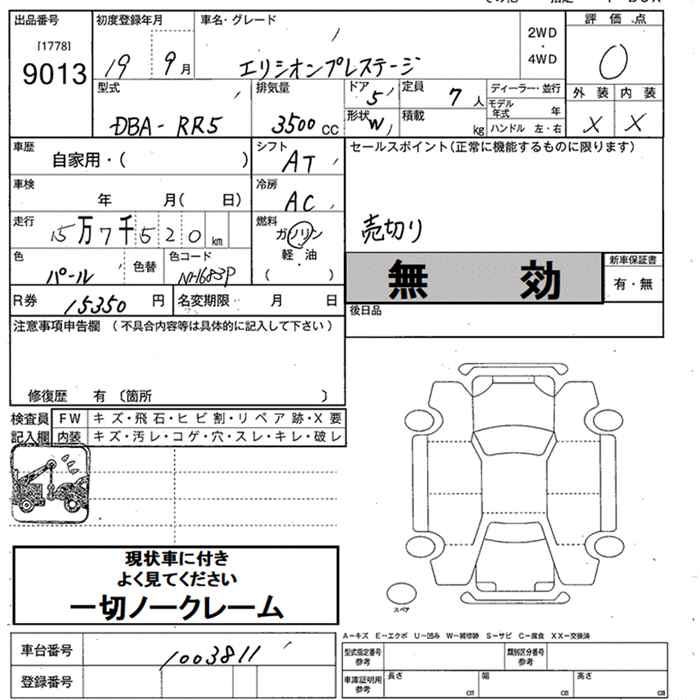 出品番号 初度登録年月 車名・グレード 2WD・4WD 評価点
[1778]
9013 19 9月 エリシオンプレステージ 0
型式 排気量 ドア 5 定員 7人 ディーラー・並行 外装 内装
DBA-RR5 3500cc 形状 W 積載 kg モデル年式 年 X X
ハンドル 左・右
車歴 シフト セールスポイント(正常に機能するものに限ります)
自家用・( ) AT
車検 年 月( 日) 冷房 AC
走行 15万7千520km 燃料 ガソリン 売切り
軽・油
( )
色 パール 色替 色コード NH683P 無効 新車保証書
有・無
R券 15350円 名変期限 月 日 後日品
注意事項申告欄(不具合内容等は具体的に記入して下さい)
修復歴 有(箇所 )
検査員 FW キズ・飛石・ヒビ割・リペア跡・X要
記入欄 内装 キズ・汚レ・コゲ・穴・スレ・キレ・破レ
現状車に付き
よく見てください
一切ノークレーム
スペア
A-キズ E-エクボ U-凹み W-補修跡 S-サビ C-腐食 XX-交換済
車台番号 1003811 型式指定番号 参考 類別区分番号 参考
登録番号 車庫証明用 参考 長さ cm 幅 cm 高さ cm